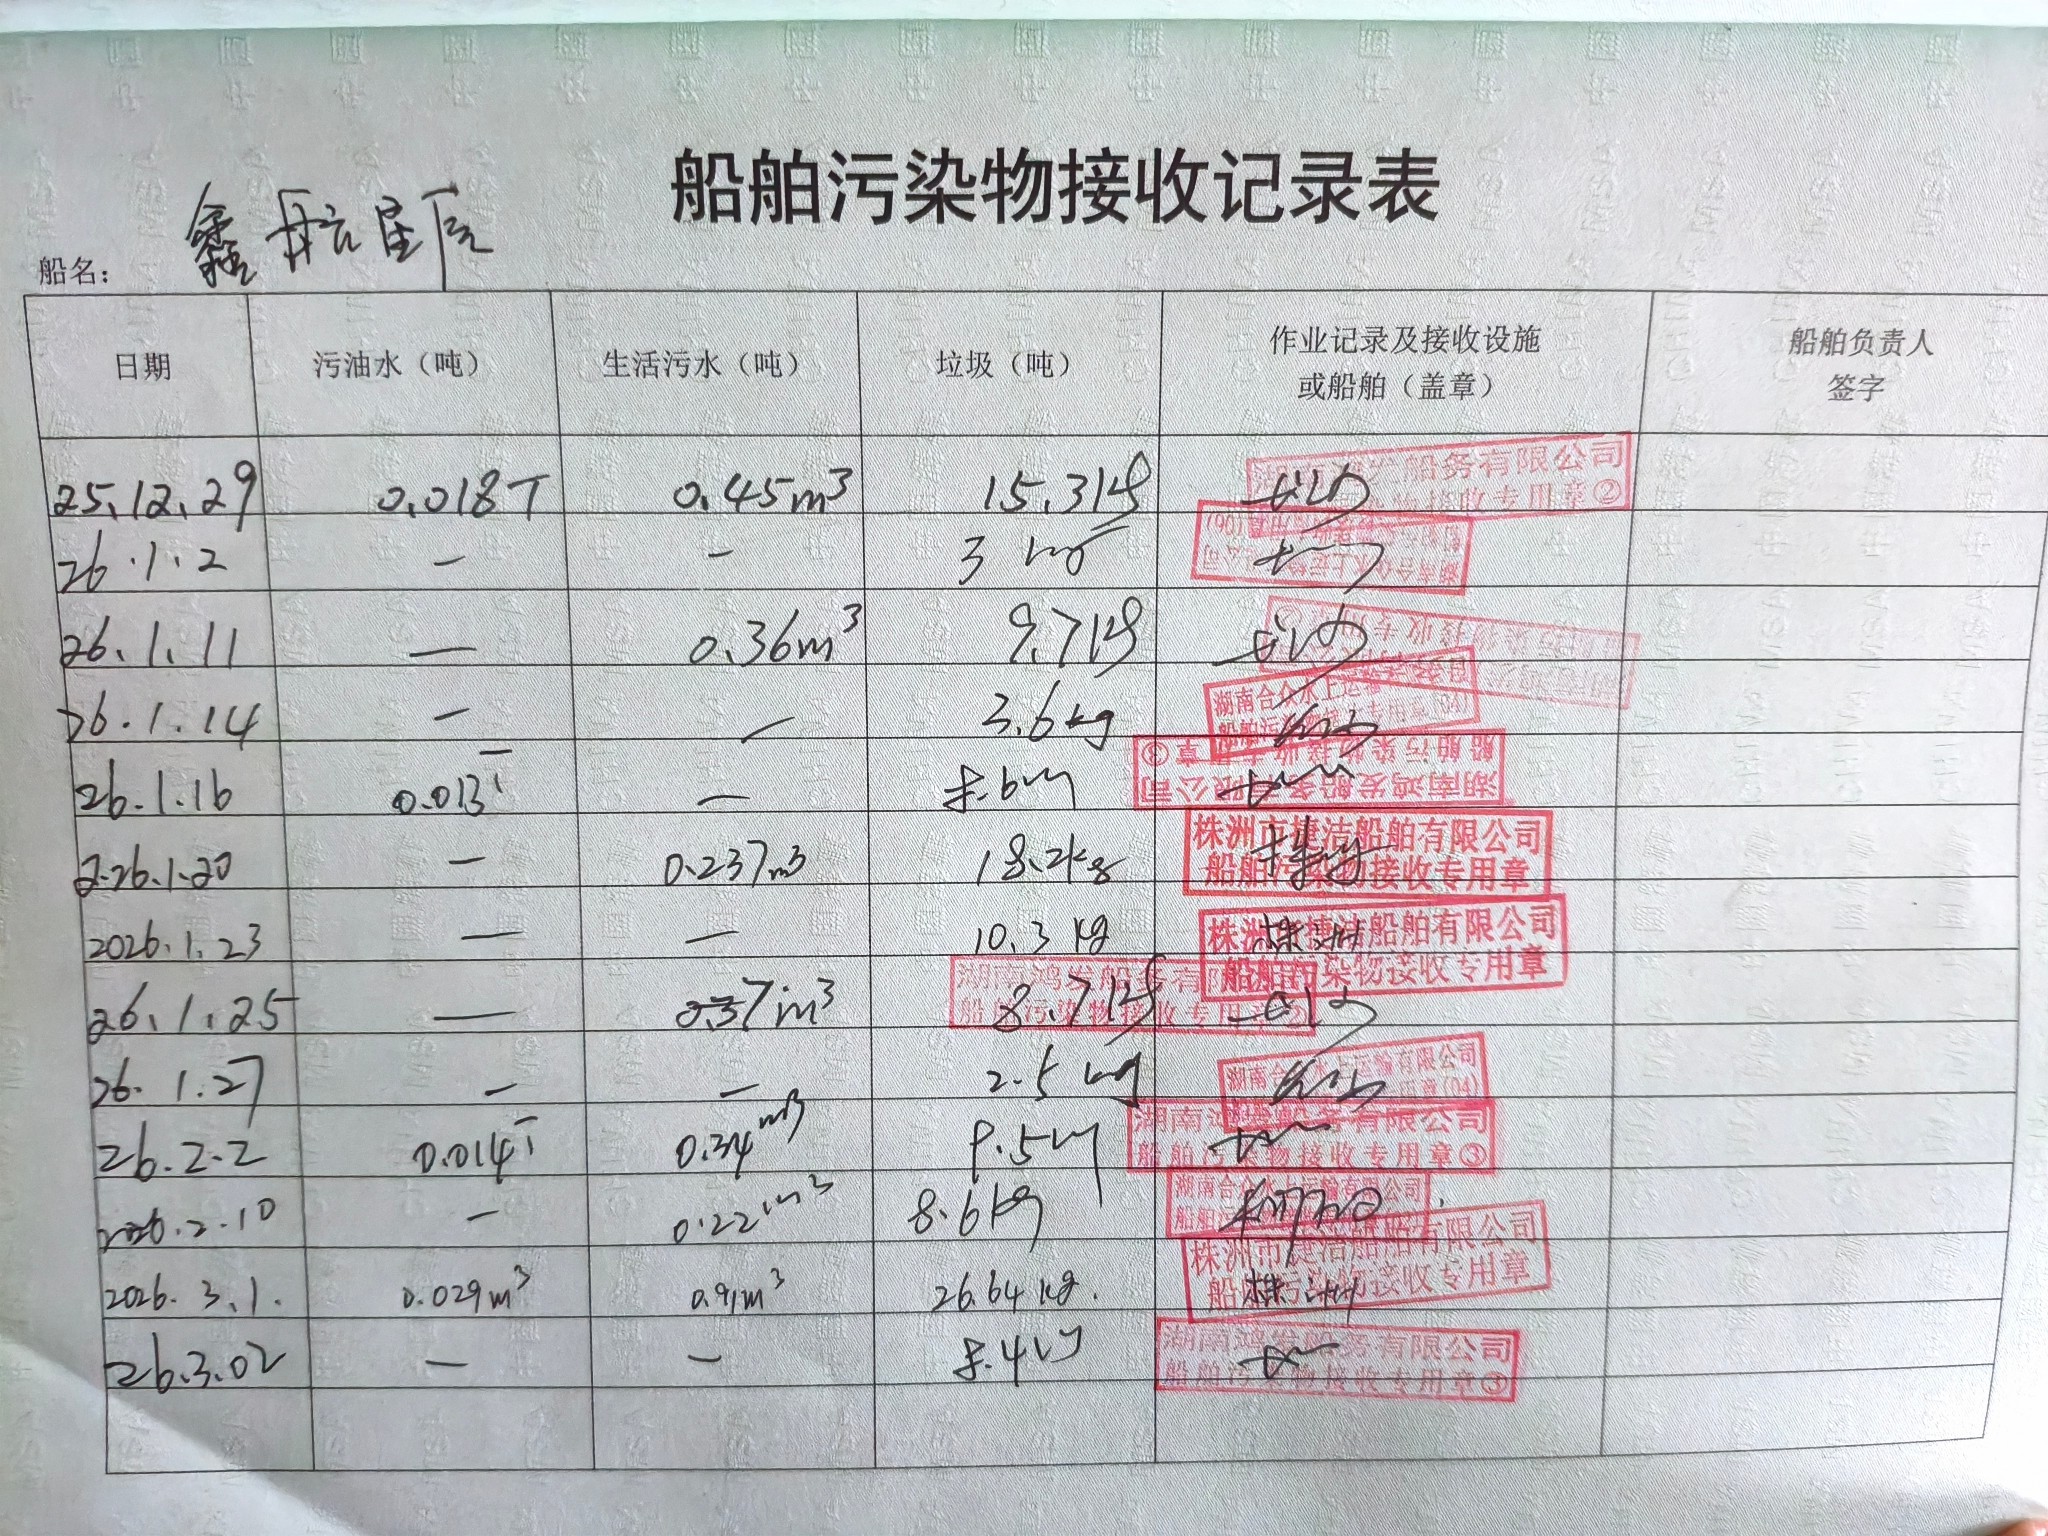 船舶污染物接收记录表
船名: 鑫航星辰
日期 污油水（吨） 生活污水（吨） 垃圾（吨） 作业记录及接收设施或船舶（盖章） 船舶负责人签字
25.12.29 0.018T 0.45m³ 15.3kg
26.1.2 — — 3 kg
26.1.11 — 0.36m³ 9.7kg
26.1.14 — — 3.6kg 湖南合众水上运输有限公司
26.1.16 0.013T — 8.6kg 湖南鸿发船务有限公司 船舶污染物接收专用章③
2026.1.20 — 0.237m³ 18.2kg 株洲市捷洁船舶有限公司 船舶污染物接收专用章
2026.1.23 — — 10.3kg 株洲 株洲市捷洁船舶有限公司 船舶污染物接收专用章
26.1.25 — 0.37m³ 8.7kg 湖南鸿发船务有限公司 船舶污染物接收专用章②
26.1.27 — — 2.5kg 湖南合众水上运输有限公司
26.2.2 0.014T 0.34m³ 9.5kg 湖南鸿发船务有限公司 船舶污染物接收专用章③
2026.2.10 — 0.22m³ 8.6kg 湖南合众水上运输有限公司
2026.3.1. 0.029m³ 0.91m³ 26.64kg. 株洲 株洲市捷洁船舶有限公司 船舶污染物接收专用章
26.3.02 — — 8.4kg 湖南鸿发船务有限公司 船舶污染物接收专用章③